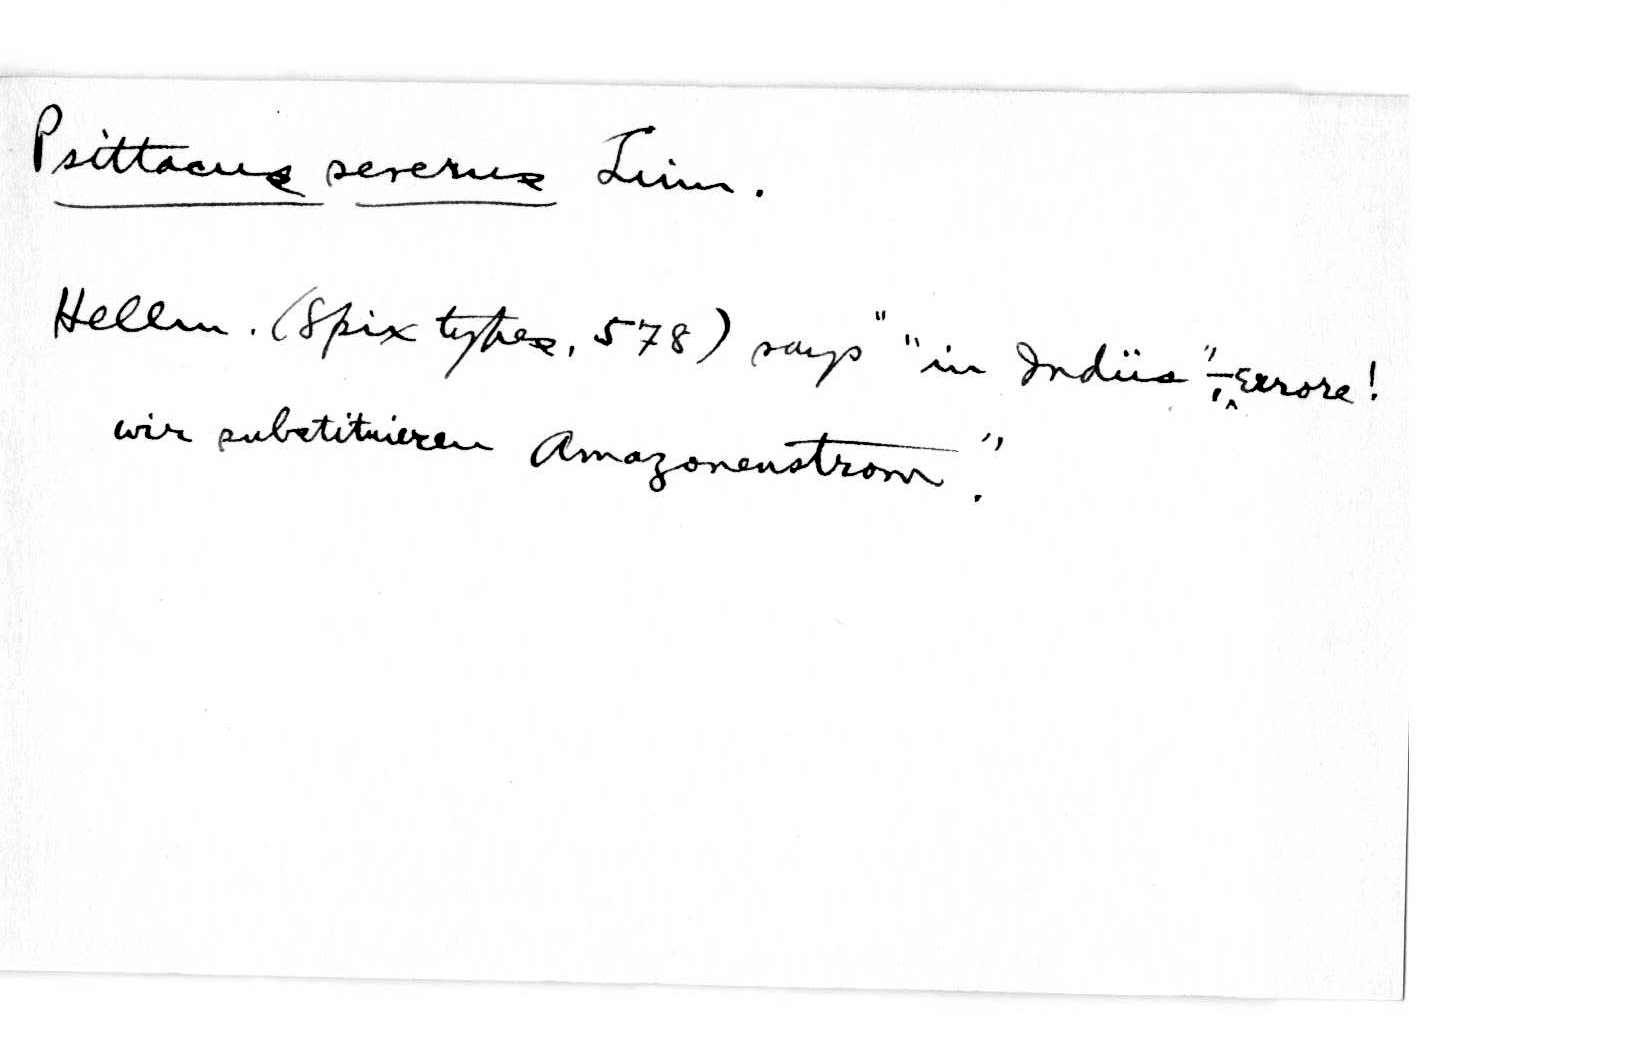 Psittacus severus Linn.
Hellm. (Spix types, 578) says " "in Indiis" – errore!
wir substituieren Amazonenstrom."